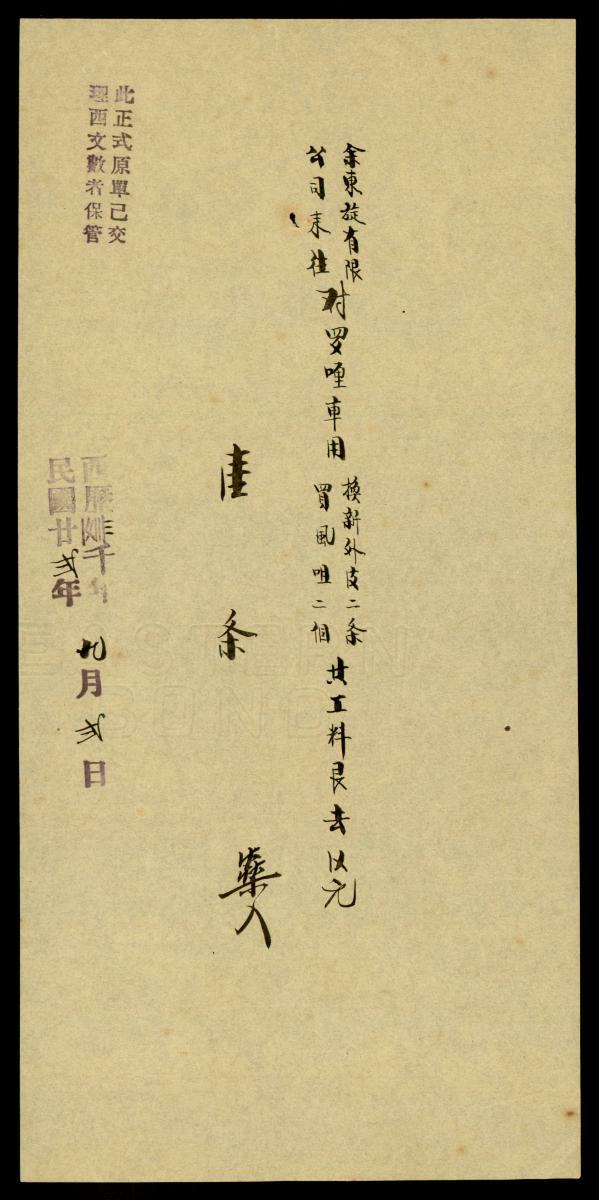 余東旋有限
公司来往
对罗哩車用
換新外皮二条
買風咀二個
共工料艮去
元
条
入
此正式原單已交
理西文數者保管
西曆
千
年
民國廿弍年
九月弍日
EASTERN
BOND